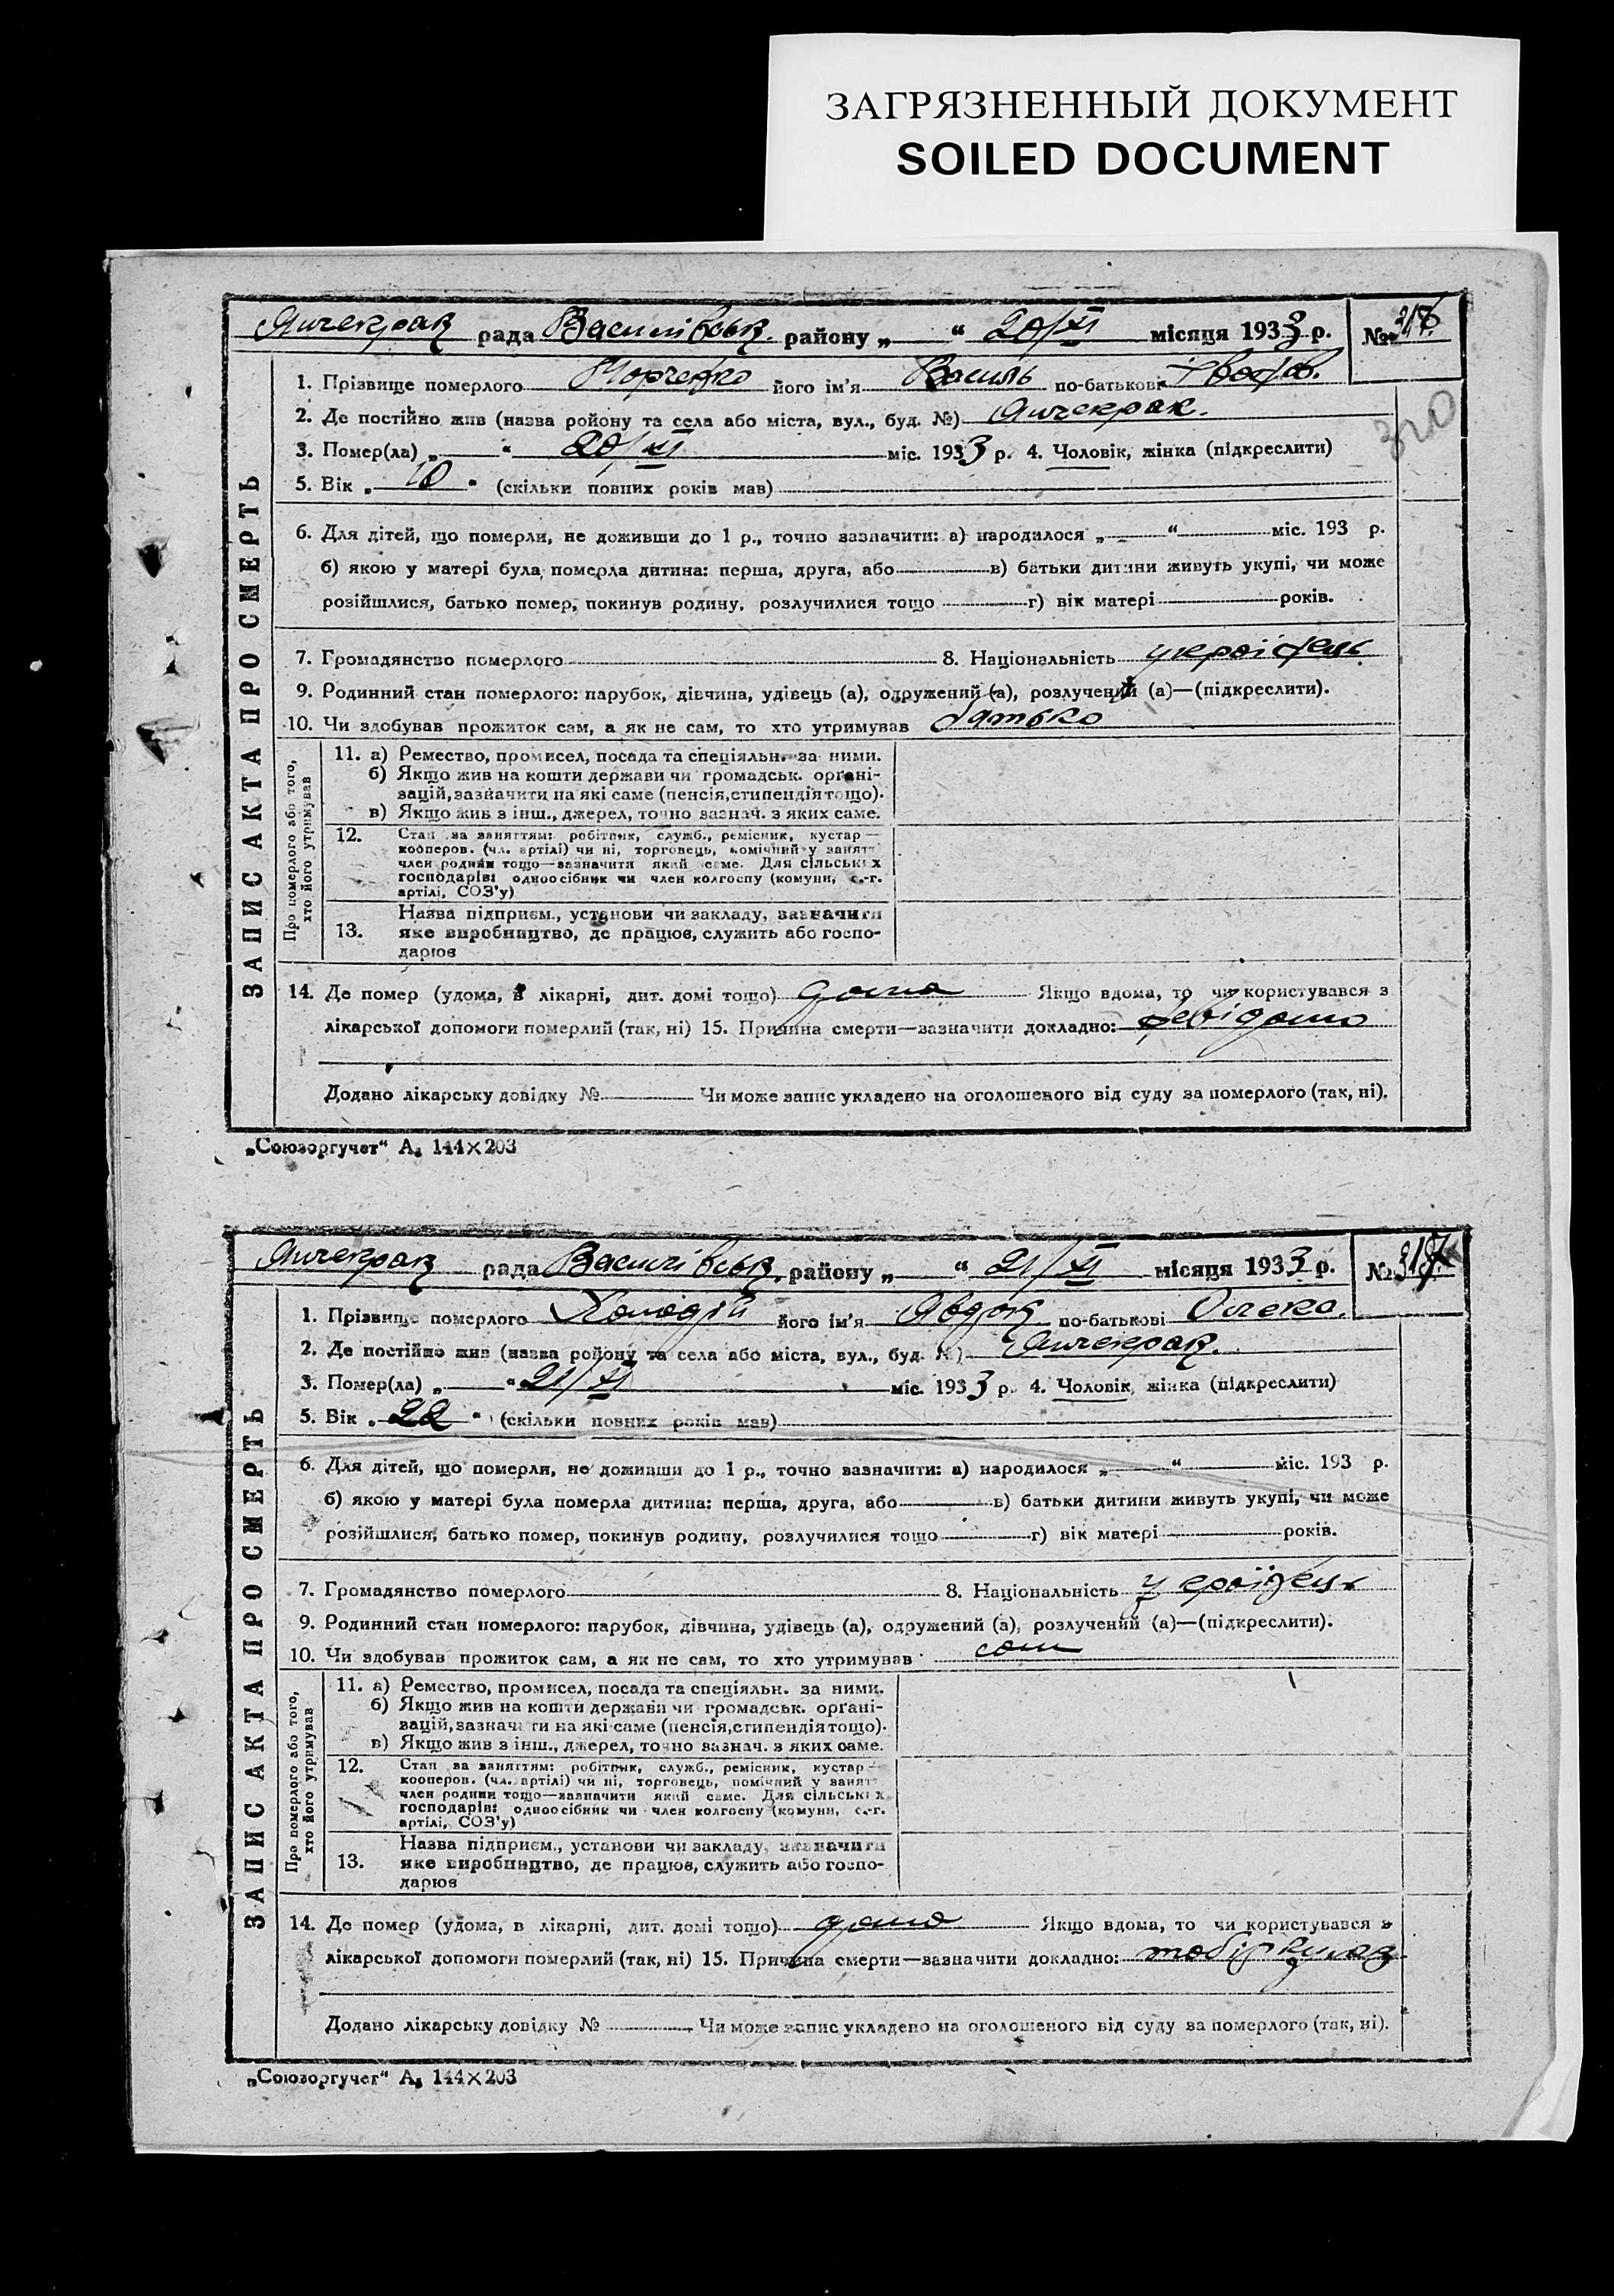 ЗАГРЯЗНЕННЫЙ ДОКУМЕНТ
SOILED DOCUMENT
Янчекрак рада Василівськ. району „ “ 20/XI місяця 1933 р. №
1. Прізвище померлого його ім'я Василь по-батькові
2. Де постійно жив (назва району та села або міста, вул., буд. №) Янчекрак.
3. Помер(ла) „ “ 20/XI міс. 1933 р. 4. Чоловік, жінка (підкреслити)
320
5. Вік „ 10 “ (скільки повних років мав)
6. Для дітей, що померли, не доживши до 1 р., точно зазначити: а) народилося „ “ міс. 193 р.
б) якою у матері була померла дитина: перша, друга, або в) батьки дитини живуть укупі, чи може
розійшлися, батько помер, покинув родину, розлучилися тощо г) вік матері років.
7. Громадянство померлого 8. Національність українець
9. Родинний стан померлого: парубок, дівчина, удівець (а), одружений (а), розлучений (а)—(підкреслити).
10. Чи здобував прожиток сам, а як не сам, то хто утримував батько
ЗАПИС АКТА ПРО СМЕРТЬ
Про померлого або того,
хто його утримував
11. а) Ремество, промисел, посада та спеціяльн. за ними.
б) Якщо жив на кошти держави чи громадськ. орґані-
зацій, зазначити на які саме (пенсія, стипендія тощо).
в) Якщо жив з інш., джерел, точно зазнач. з яких саме.
12. Стан за заняттям: робітник, служб., ремісник, кустар—
кооперов. (чл. артілі) чи ні, торговець, помічний у занятт
член родини тощо—зазначити який саме. Для сільських
господарів: одноосібник чи член колгоспу (комуни, с.-г.
артілі, СОЗ'у)
Назва підприєм., установи чи закладу, зазначити
13. яке виробництво, де працює, служить або госпо-
дарює
14. Де помер (удома, в лікарні, дит. домі тощо) дома Якщо вдома, то чи користувався з
лікарської допомоги померлий (так, ні) 15. Причина смерти—зазначити докладно: невідомо
Додано лікарську довідку № Чи може запис укладено на оголошеного від суду за померлого (так, ні).
„Союзоргучет“ А₅ 144×203
Янчекрак рада Василівськ. району „ “ 21/XI місяця 1933 р. № 317
1. Прізвище померлого Холодій його ім'я по-батькові
2. Де постійно жив (назва району та села або міста, вул., буд. №) Янчекрак.
3. Помер(ла) „ “ 21/XI міс. 1933 р. 4. Чоловік, жінка (підкреслити)
5. Вік „ 22 “ (скільки повних років мав)
6. Для дітей, що померли, не доживши до 1 р., точно зазначити: а) народилося „ “ міс. 193 р.
б) якою у матері була померла дитина: перша, друга, або в) батьки дитини живуть укупі, чи може
розійшлися, батько помер, покинув родину, розлучилися тощо г) вік матері років.
7. Громадянство померлого 8. Національність українець
9. Родинний стан померлого: парубок, дівчина, удівець (а), одружений (а), розлучений (а)—(підкреслити).
10. Чи здобував прожиток сам, а як не сам, то хто утримував сам
ЗАПИС АКТА ПРО СМЕРТЬ
Про померлого або того,
хто його утримував
11. а) Ремество, промисел, посада та спеціяльн. за ними.
б) Якщо жив на кошти держави чи громадськ. орґані-
зацій, зазначити на які саме (пенсія, стипендія тощо).
в) Якщо жив з інш., джерел, точно зазнач. з яких саме.
12. Стан за заняттям: робітник, служб., ремісник, кустар—
кооперов. (чл. артілі) чи ні, торговець, помічний у занятт
член родини тощо—зазначити який саме. Для сільських
господарів: одноосібник чи член колгоспу (комуни, с.-г.
артілі, СОЗ'у)
Назва підприєм., установи чи закладу, зазначити
13. яке виробництво, де працює, служить або госпо-
дарює
14. Де помер (удома, в лікарні, дит. домі тощо) дома Якщо вдома, то чи користувався з
лікарської допомоги померлий (так, ні) 15. Причина смерти—зазначити докладно:
Додано лікарську довідку № Чи може запис укладено на оголошеного від суду за померлого (так, ні).
„Союзоргучет“ А₅ 144×203